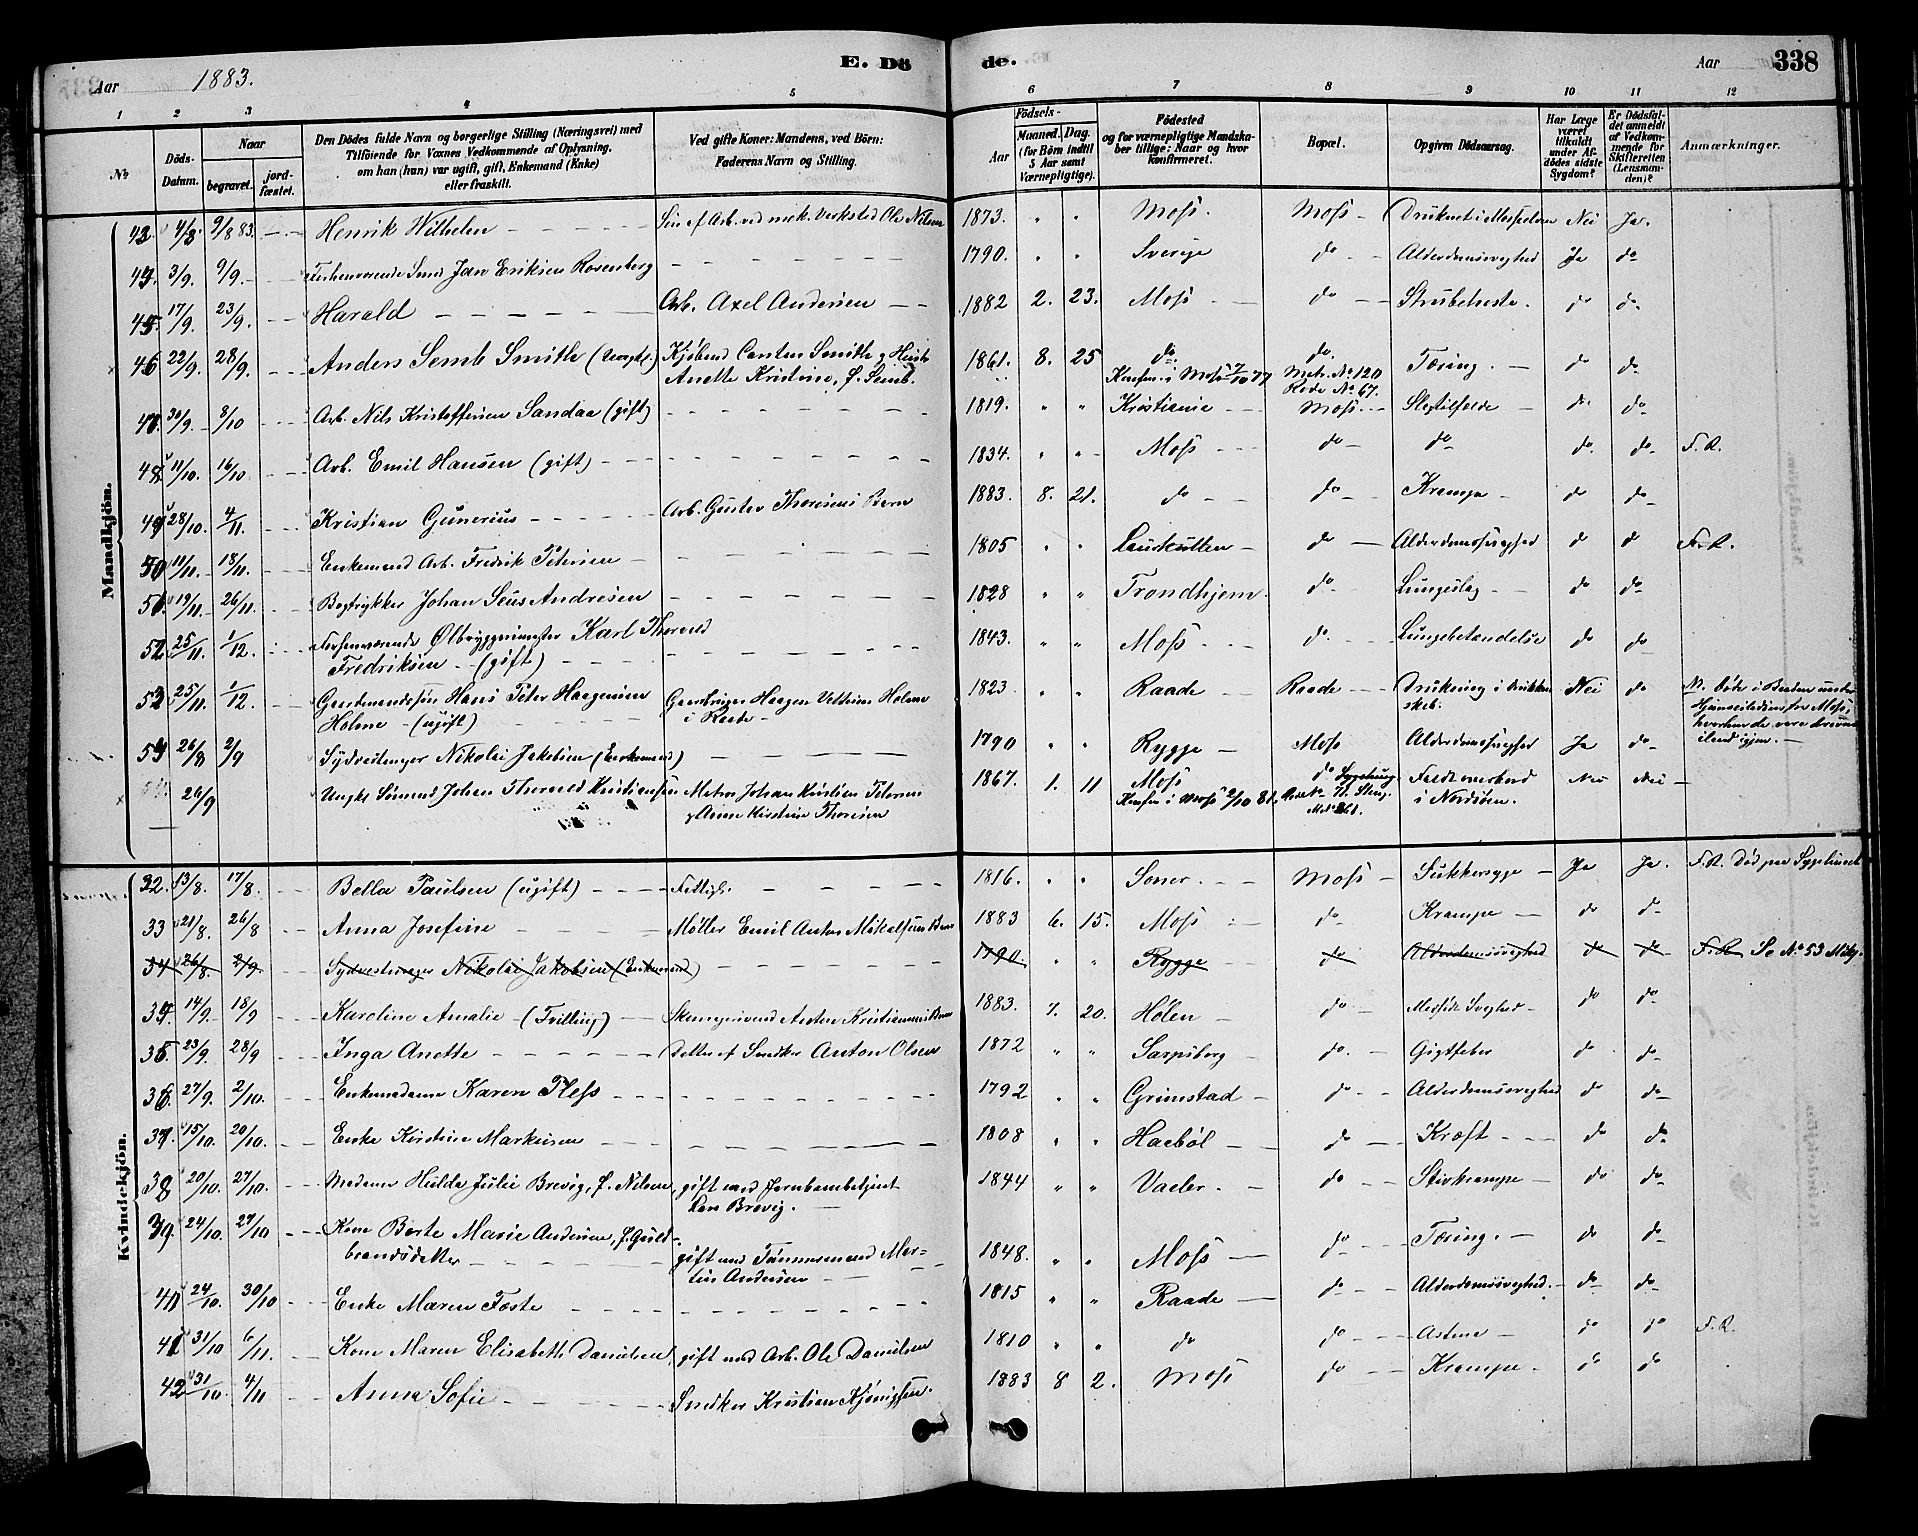 Aar 1883. E. Dö de. Aar 338
1 2 3 4 5 6 7 8 9 10 11 12
No
Döds-Datum.
Naar
begravet.
jord-fæstet.
Den Dödes fulde Navn og borgerlige Stilling (Næringsvei) med
Tilföiende for Voxnes Vedkommende af Oplysning,
om han (hun) var ugift, gift, Enkemand (Enke)
eller fraskilt.
Ved gifte Koner: Mandens, ved Börn:
Faderens Navn og Stilling.
Födsels-
Aar
Maaned. Dag.
(for Börn indtil
5 Aar samt
Værnepligtige).
Födested
og for værnepligtige Mandska-
ber tillige: Naar og hvor
konfirmeret.
Bopæl.
Opgiven Dödsaarsag.
Har Læge
været
tilkaldt
under Af-
dödes sidste
Sygdom?
Er Dödsfal-
det anmeldt
af Vedkom-
mende for
Skifteretten
(Lensman-
den)?
Anmærkninger.
Mandkjön.
43. 4/8. 9/8 83. Henrik Wilhelm Søn af Arb. ved mek. Verksted Ole Nilsen 1873. " " Moss. Moss Druknet i Nei Ja.
3/9. 9/9. Smed Jan Eriksen Rosenberg 1790. " " Sverige do Alderdomssvaghed Ja do
45. 17/9. 23/9. Harald Arb. Axel Andersen 1882 2. 23. Moss do Strubehoste. do do
46 22/9. 28/9. Anders Semb Smith Kjøbmd Carsten Smith og Hustr
Anette Kristine, f. Semb. 1861. 8. 25 do. Konfm. i Moss 7/10 77 do. Matr. No 120 Rode No 67. Tæring. do do
47. 30/9. 3/10 Arb. Nils Kristoffersen Sandaa (gift) 1819. " " Kristiania Moss. Slagtilfælde do do
48. 11/10. 16/10 Arb. Emil Hansen (gift) 1834. " " Moss do do do. do. F. R.
49. 28/10. 4/11. Kristian Gunerius Arb. Gustav Thoresens Barn 1883. 8. 21. do do Krampe do do
50. 11/11. 18/11. Enkemand Arb. Fredrik Petersen 1805 " " do Alderdomssvaghed do do F. R.
51. 19/11. 26/11. Bogtrykker Johan Seus Andresen 1828 " " Trondhjem. do Lungeslag do do
52. 25/11. 1/12. Ølbryggermester Karl Thorvald
Fredriksen (gift) 1843. " " Moss. do. Lungebetændelse do do
53. 25/11. 1/12. Gaardmandssøn Hans Peter Haagensen
Holme (ugift) Gaardbruger Haagen Holme
i Raade 1823 " " Raade Raade Drukning i Nei do
54 26/8 2/9 Nikolai Jakobsen (Enkemand) 1790 " " Rygge Moss Alderdomssvaghed Ja do
26/9 Ungk. Sømand Johan Thorvald Kristiansen Matros Johan Kristian Petersen
Kirstine Thoresen 1867. 1. 11 Moss Konfm. i Moss 2/10 81. do Faldt overbord
i Nordsøen. Nei Nei
Kvindekjön.
32. 13/8. 17/8. Bella Paulsen (ugift) Fattigl. 1816. " " Soner. Moss Sukkersyge Ja Ja. F. R. Død paa Sygehuset
33 21/8. 26/8 Anna Josefine Møller Emil Anton Mikalsens Barn 1883 6. 15. Moss do Krampe do do
34 26/8. 2/9. Nikolai Jakobsen (Enkemand) 1790. " " Rygge do Alderdomssvaghed do do F. R. Se No 53 Mandkj.
34. 14/9. 18/9 Karoline Amalie (Tvilling) Anton Kristiansens Barn 1883. 7. 20. Hølen do Medfødt Svaghed do do
35. 23/9. 28/9 Inga Anette Datter af Snedker Anton Olsen 1872 " " Sarpsborg do. Gigtfeber do do
36. 27/9. 2/10. Enkemadame Karen Pless 1792 " " Grimstad do Alderdomssvaghed do do
37. 15/10. 20/10. Enke Kirstine Markusen 1808 " " Haabøl do Kræft do do
38 20/10. 27/10. Madame Hulda Julie Brevig, f. Nilsen, gift med Jernbanebetjent
Lars Brevig. 1844 " " Vaaler. do Stivkrampe do do
39. 24/10. 27/10 Kone Berte Marie Andersen, f. Guld-
brandsdatter gift med Tømmermand Mar-
tin Andersen 1848. " " Moss do Tæring. do do
40 24/10. 30/10 Enke Maren Foste 1815 " " Raade do Alderdomssvaghed. do do
41 31/10 6/11. Kone Maren Elisabeth Danielsen, gift med Arb. Ole Danielsen 1810 " " do do Astma do do F. R.
42 31/10. 4/11 Anna Sofie Snedker Kristian 1883 8 2. Moss do Krampe do do